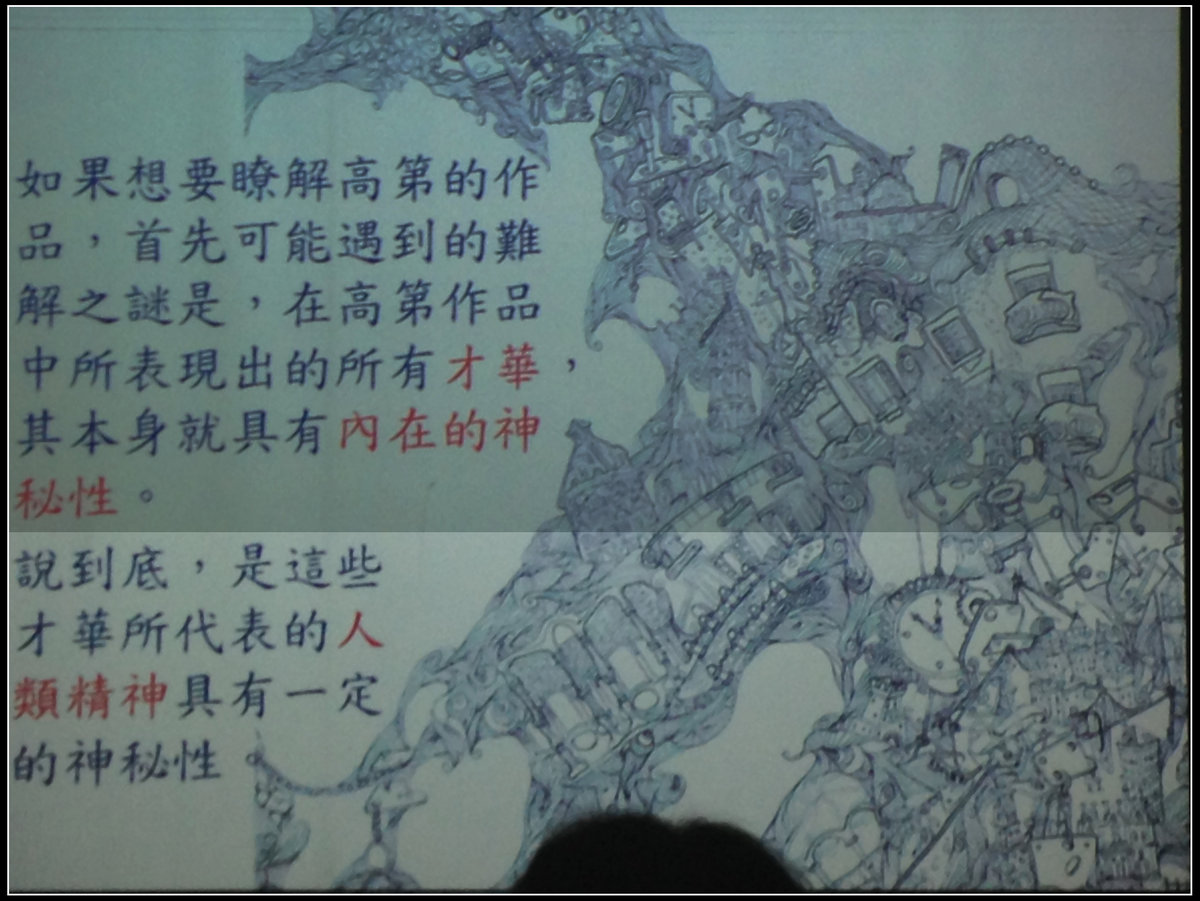 如果想要瞭解高第的作
品，首先可能遇到的難
解之謎是，在高第作品
中所表現出的所有才華，
其本身就具有內在的神
秘性。
說到底，是這些
才華所代表的人
類精神具有一定
的神秘性